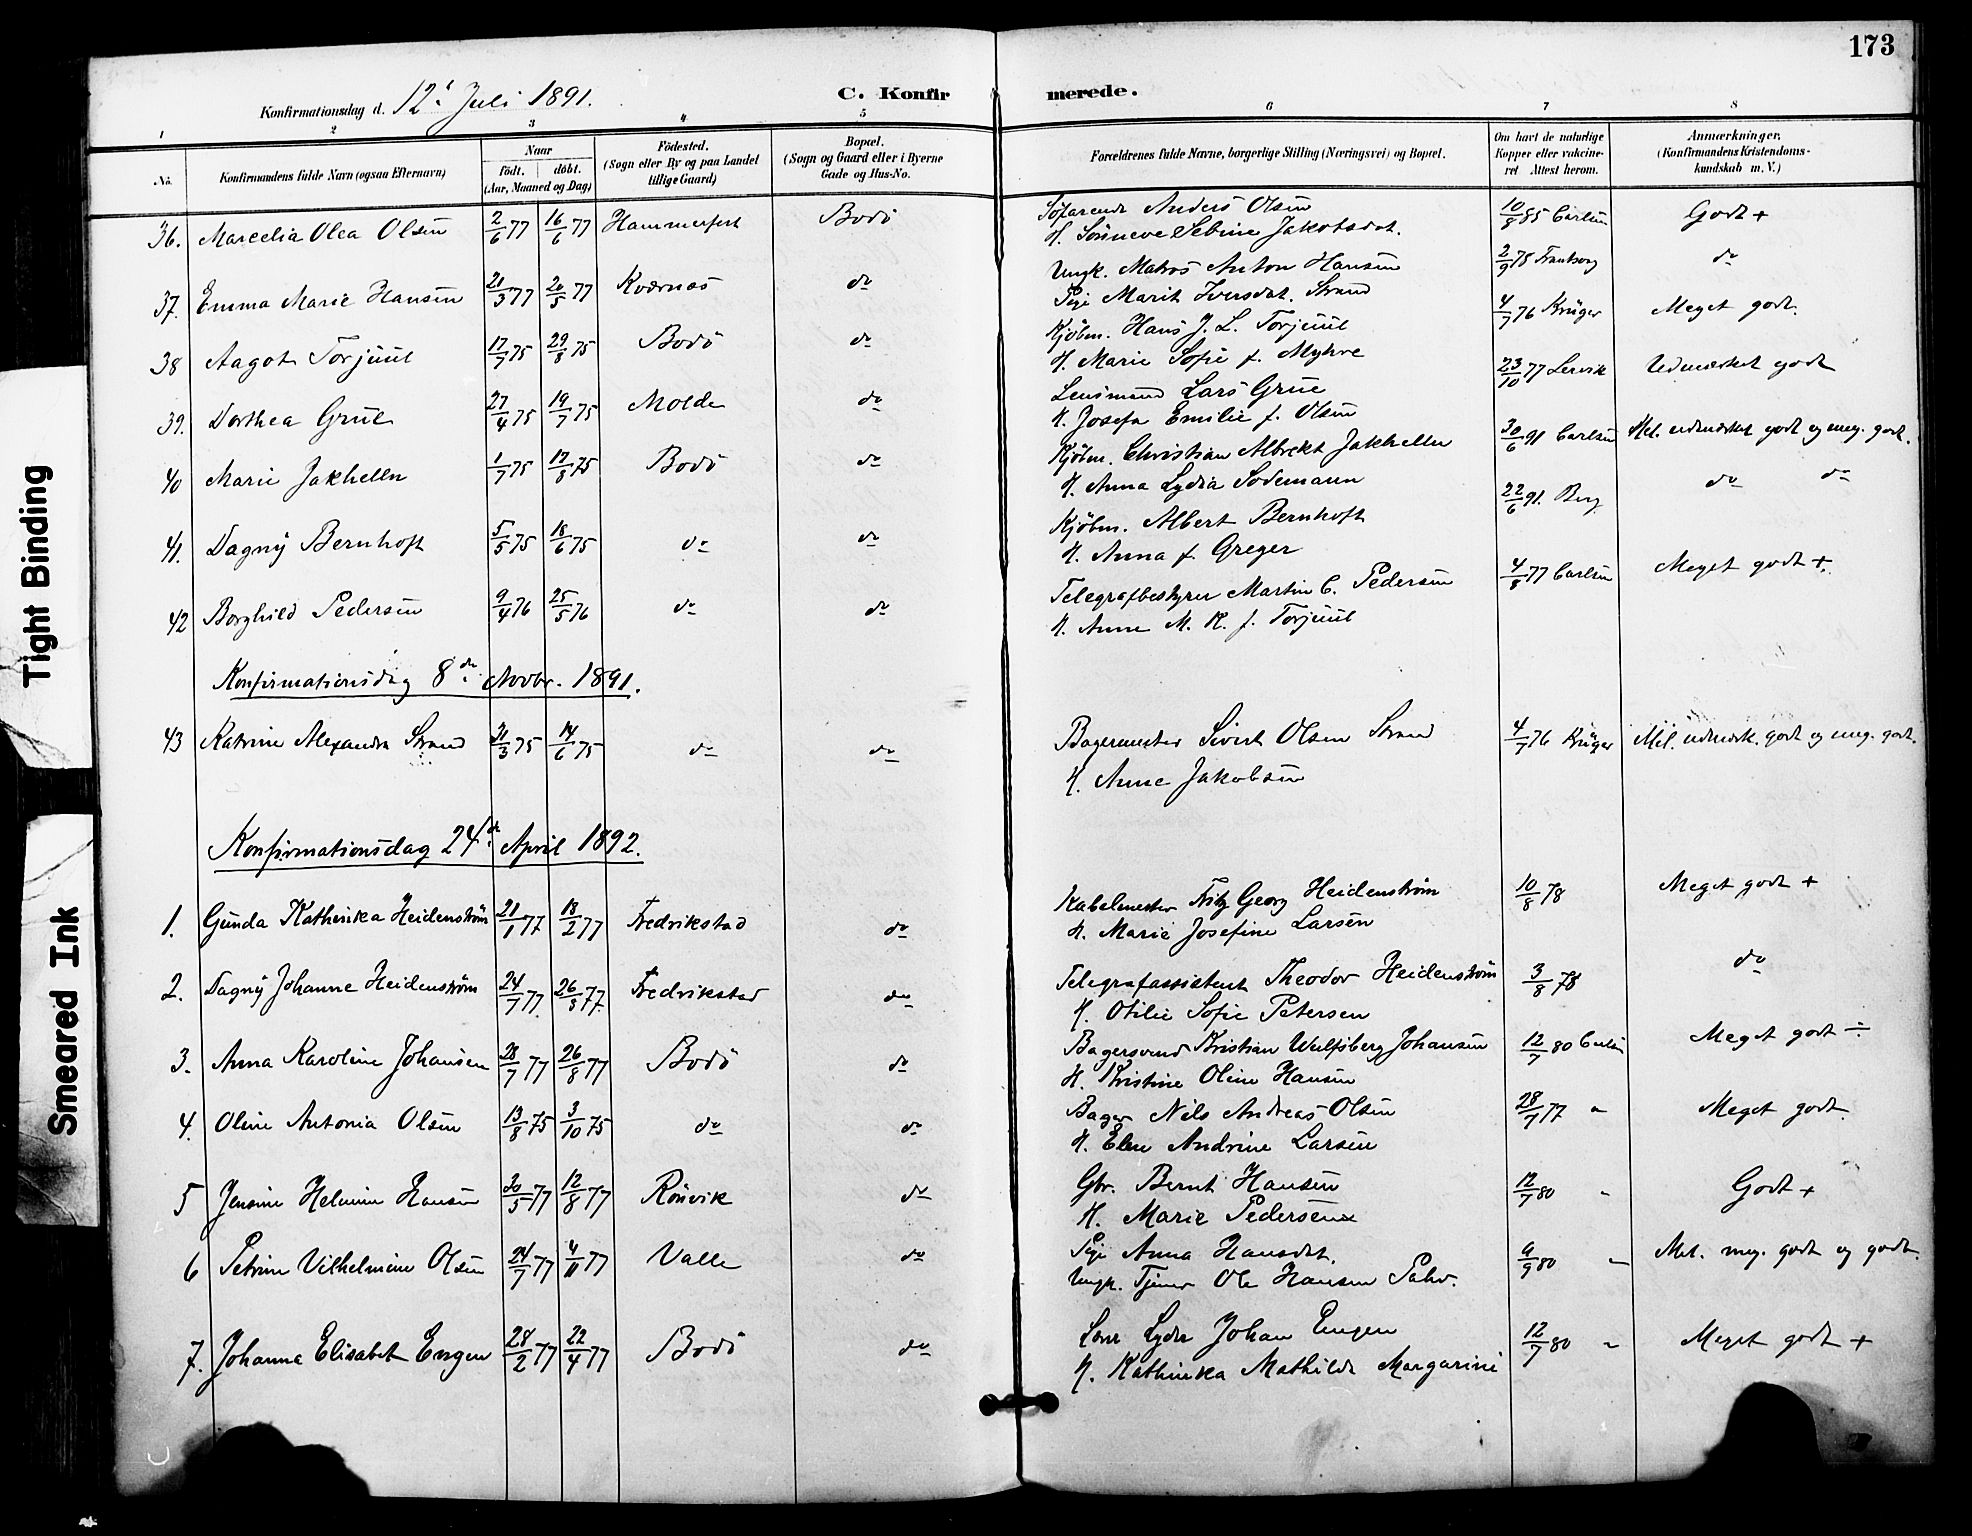 173
Konfirmationsdag d. 12' Juli 1891. C. Konfirmerede.
1 2 3 4 5 6 7 8
No. Konfirmandens fulde Navn (ogsaa Efternavn) Naar født. døbt. (Aar, Maaned og Dag) Fødested. (Sogn eller By og paa Landet tillige Gaard) Bopæl. (Sogn og Gaard eller i Byerne Gade og Hus-No. Forældrenes fulde Navne, borgerlige Stilling (Næringsvei) og Bopæl. Om havt de naturlige Kopper eller vakcineret. Attest herom. Anmærkninger. (Konfirmandens Kristendomskundskab m. V.)
36. Marcelia Olea Olsen 2/6 77 16/6 77 Hammerfest Bodö Söfarende Anders Olsen 10/8 85 Carlsen Godt +
H. Sönneve Sebine Jakobsdat.
37. Emma Marie Hansen 21/3 77 20/5 77 Kværnæs do Ungk. Matros Anton Hansen 2/9 78 do
Pige Marit Iversdat. Strand
38 Aagot Torjuul 17/7 75 29/8 75 Bodö do Kjöbm. Hans J. L. Torjuul 4/7 76 Krüger Meget godt.
H. Marie Sofie f. Myhre
39. Dorthea Grüe 27/4 75 19/7 75 Molde do Lensmand Lars Grüe 23/10 77 Lervik Udmærket godt
H. Josefa Emilie f. Olsen
40 Marie Jakhelln 1/7 75 17/8 75 Bodö do Kjöbm. Christian Albrekt Jakhelln 30/6 91 Carlsen Mel. udmærket godt og meg. godt.
H. Anna Lydia Sodemann
41. Dagny Bernhoft 5/5 75 18/6 75 do do Kjöbm. Albert Bernhoft 22/6 91. Berg do do
H. Anna f. Greger
42 Borghild Pedersen 9/4 76 25/5 76 do do Telegrafbestyrer Martin C. Pedersen 4/8 77 Carlsen Meget godt +.
H. Anne M. K. f. Torjuul
Konfirmationsdag 8de Novbr. 1891.
43 Katrine Alexandra Strand 31/3 75 14/6 75 do do Bagermester Sivert Olsen Strand 4/7 76 Krüger Mel. udmærk. godt og meg. godt.
H. Anne Jakobsen
Konfirmationsdag 24de April 1892.
1. Gunda Kathinka Heidenström 21/1 77 18/2 77 Fredrikstad do Kabelmester Fritz Georg Heidenström 10/8 78 Meget godt +
H. Marie Josefine Larsen
2. Dagny Johanne Heidenström 24/7 77. 26/8 77. Fredrikstad do Telegrafassistent Theodor Heidenström 3/8 78 do
H. Otilie Sofie Petersen
3. Anna Karoline Johansen 28/7 77 26/8 77 Bodö do Bagersvend Kristian Wulfsberg Johansen 12/7 80 Carlsen Meget godt ÷
H. Kristine Oline Hansen
4. Oline Antonia Olsen 13/8 75 3/10 75 do do Bager Nils Andreas Olsen 28/7 77 " Meget godt.
H. Elen Andrine Larsen
5 Jensine Helmine Hansen 30/5 77 12/8 77 Rönvik do Gbr. Bernt Hansen 12/7 80 " Godt +
H. Marie Pedersen
6 Petrine Vilhelmine Olsen 24/7 77 4/11 77 Valle do Pige Anna Hansdat. 9/9 80 " Mel. meg. godt og godt.
Ungk. Tjener Ole Hansen
7. Johanna Elisabet Engen 28/2 77 22/4 77 Bodö do Lyder Johan Engen 12/7 80 " Meget godt +
H. Kathinka Mathilde Margarine
Tight Binding
Smeared Ink